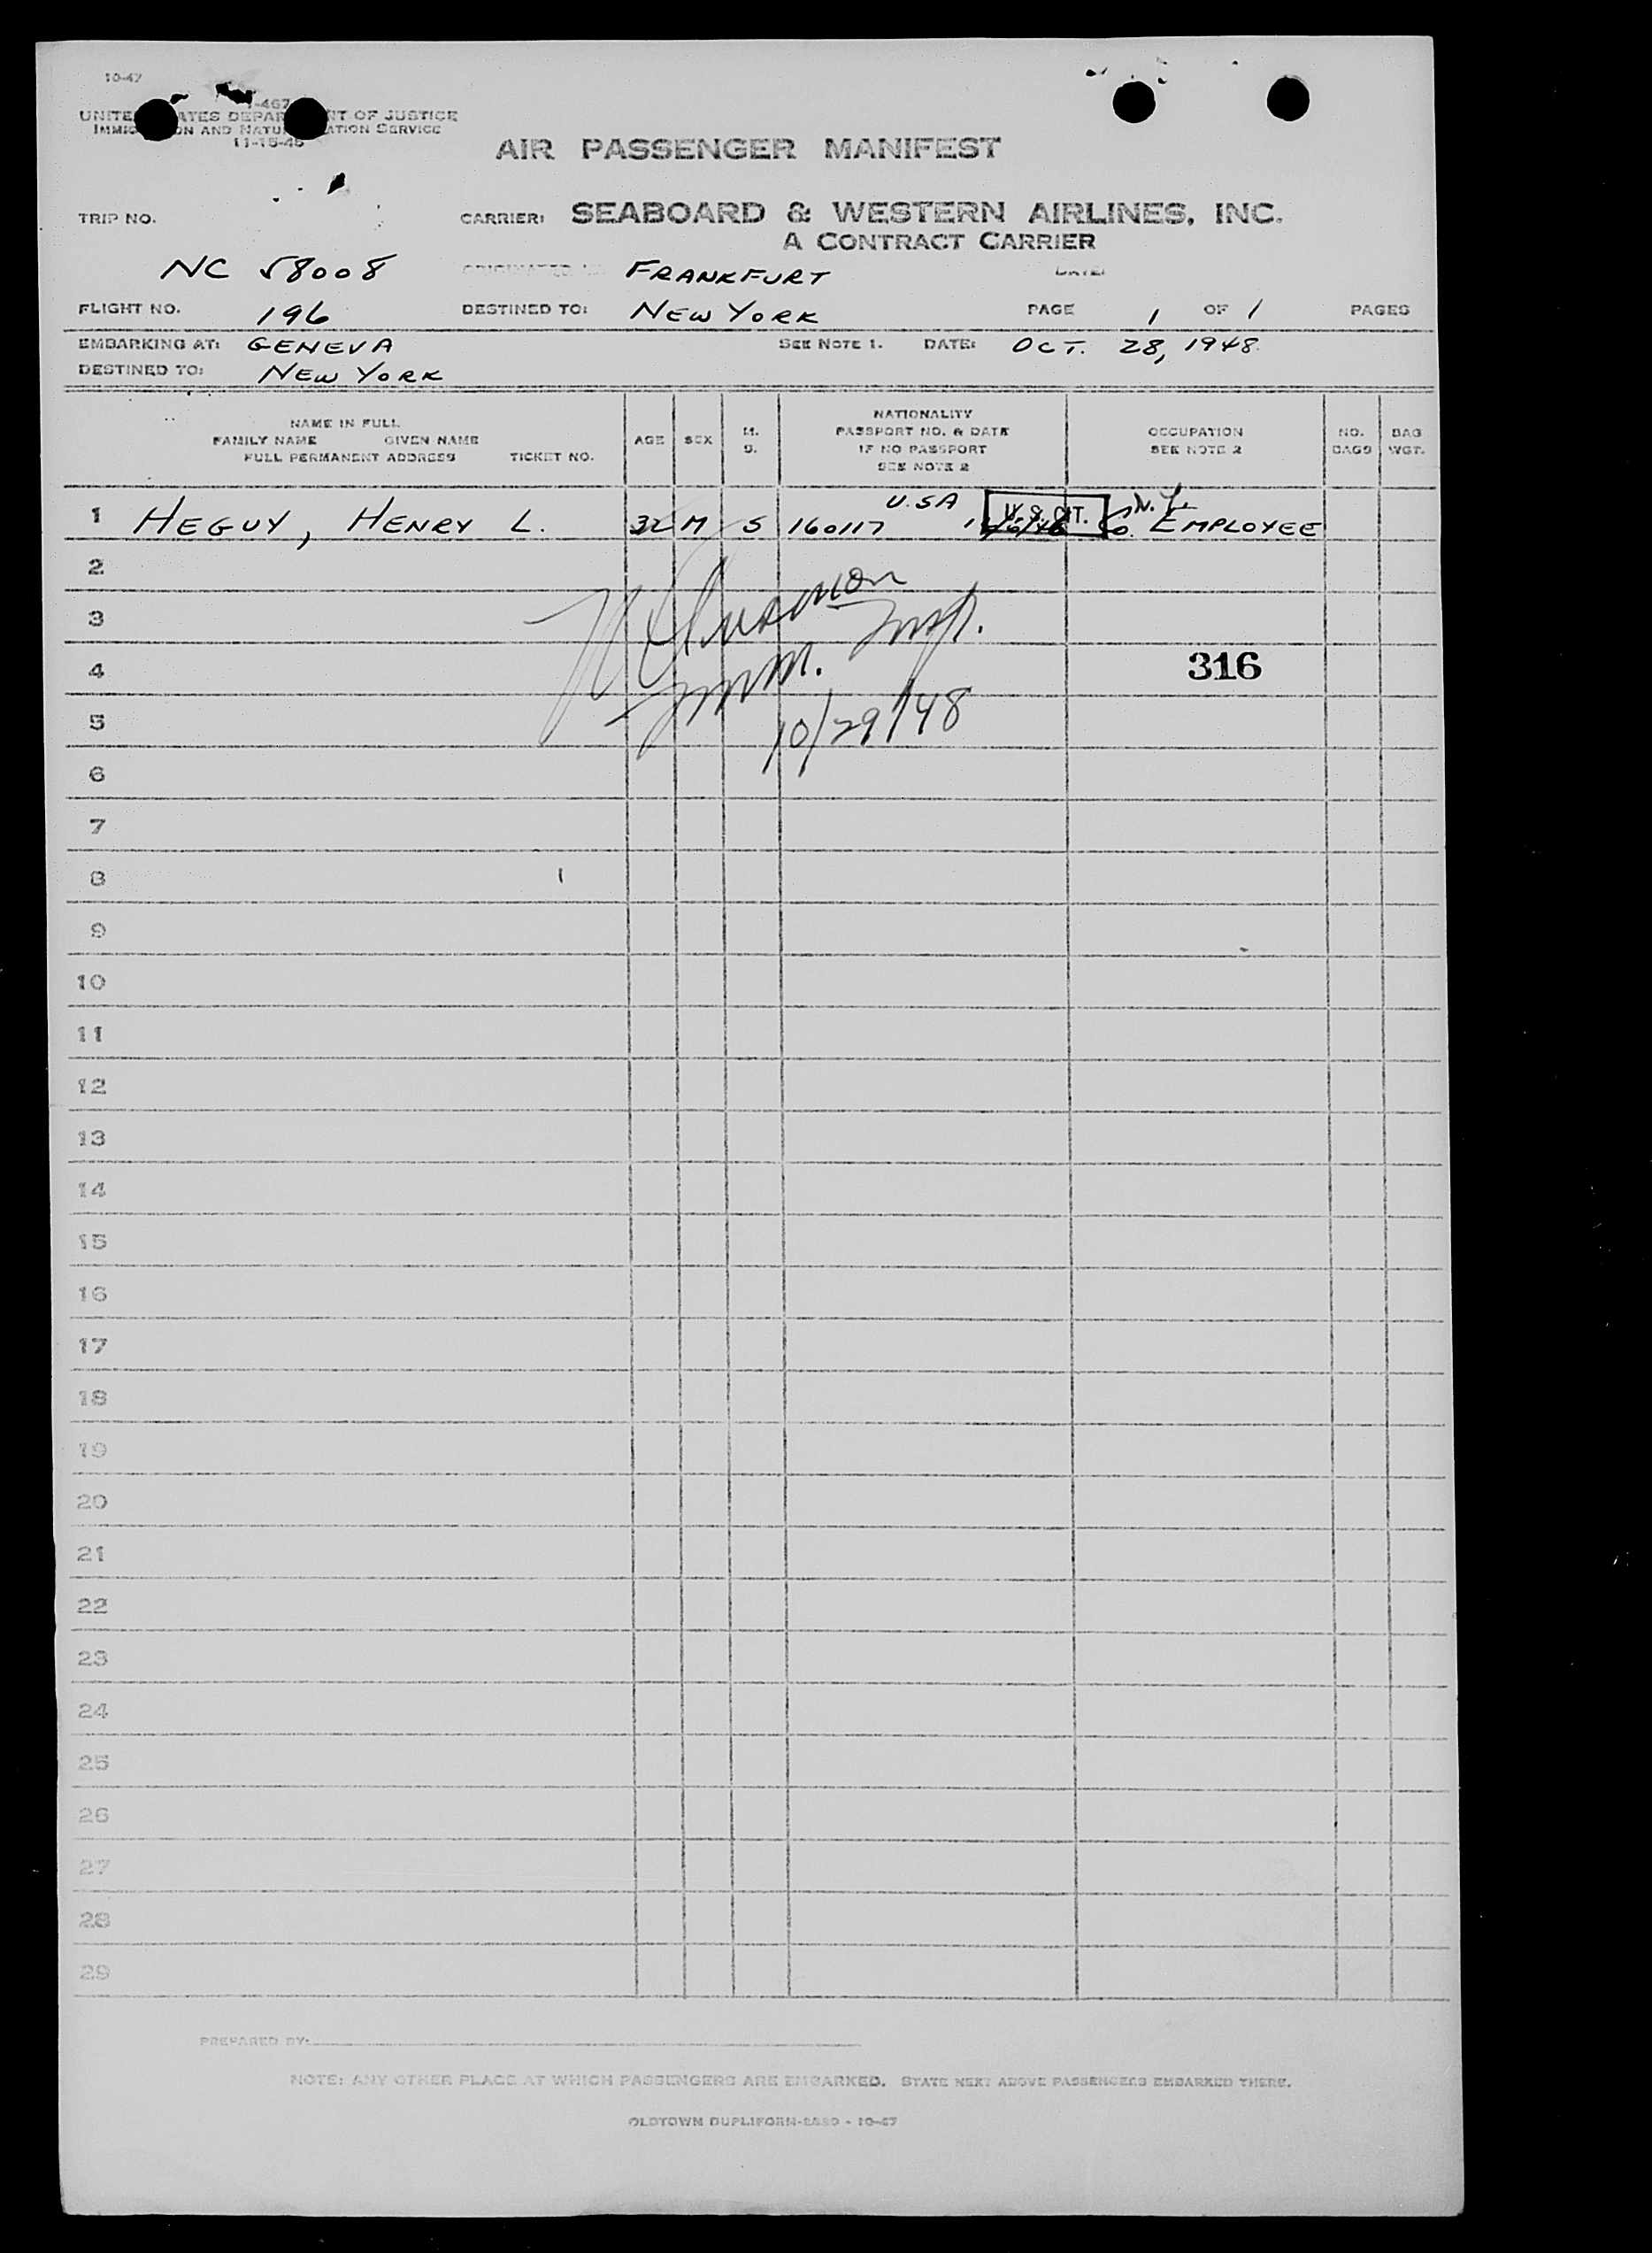 10-47
I-467
UNITED STATES DEPARTMENT OF JUSTICE
IMMIGRATION AND NATURALIZATION SERVICE
11-15-45
AIR PASSENGER MANIFEST
TRIP NO.
CARRIER: SEABOARD & WESTERN AIRLINES, INC.
A CONTRACT CARRIER
NC 58008 FRANKFURT DATE:
FLIGHT NO. 196 DESTINED TO: NEW YORK PAGE 1 OF 1 PAGES
EMBARKING AT: GENEVA SEE NOTE 1. DATE: OCT. 28, 1948
DESTINED TO: NEW YORK
NAME IN FULL
FAMILY NAME GIVEN NAME
FULL PERMANENT ADDRESS TICKET NO.
AGE
SEX
M.
S.
NATIONALITY
PASSPORT NO. & DATE
IF NO PASSPORT
SEE NOTE 2
OCCUPATION
SEE NOTE 2
NO.
BAGS
BAG
WGT.
U.SA U.S. CIT. N.Y.
1 HEGUY, HENRY L. 32 M S 160117 CO. EMPLOYEE
2
3
Imm. Insp.
4 316
10/29/48
5
6
7
8
9
10
11
12
13
14
15
16
17
18
19
20
21
22
23
24
25
26
27
28
29
PREPARED BY:
NOTE: ANY OTHER PLACE AT WHICH PASSENGERS ARE EMBARKED. STATE NEXT ABOVE PASSENGERS EMBARKED THERE.
OLDTOWN DUPLIFORM - 10-47